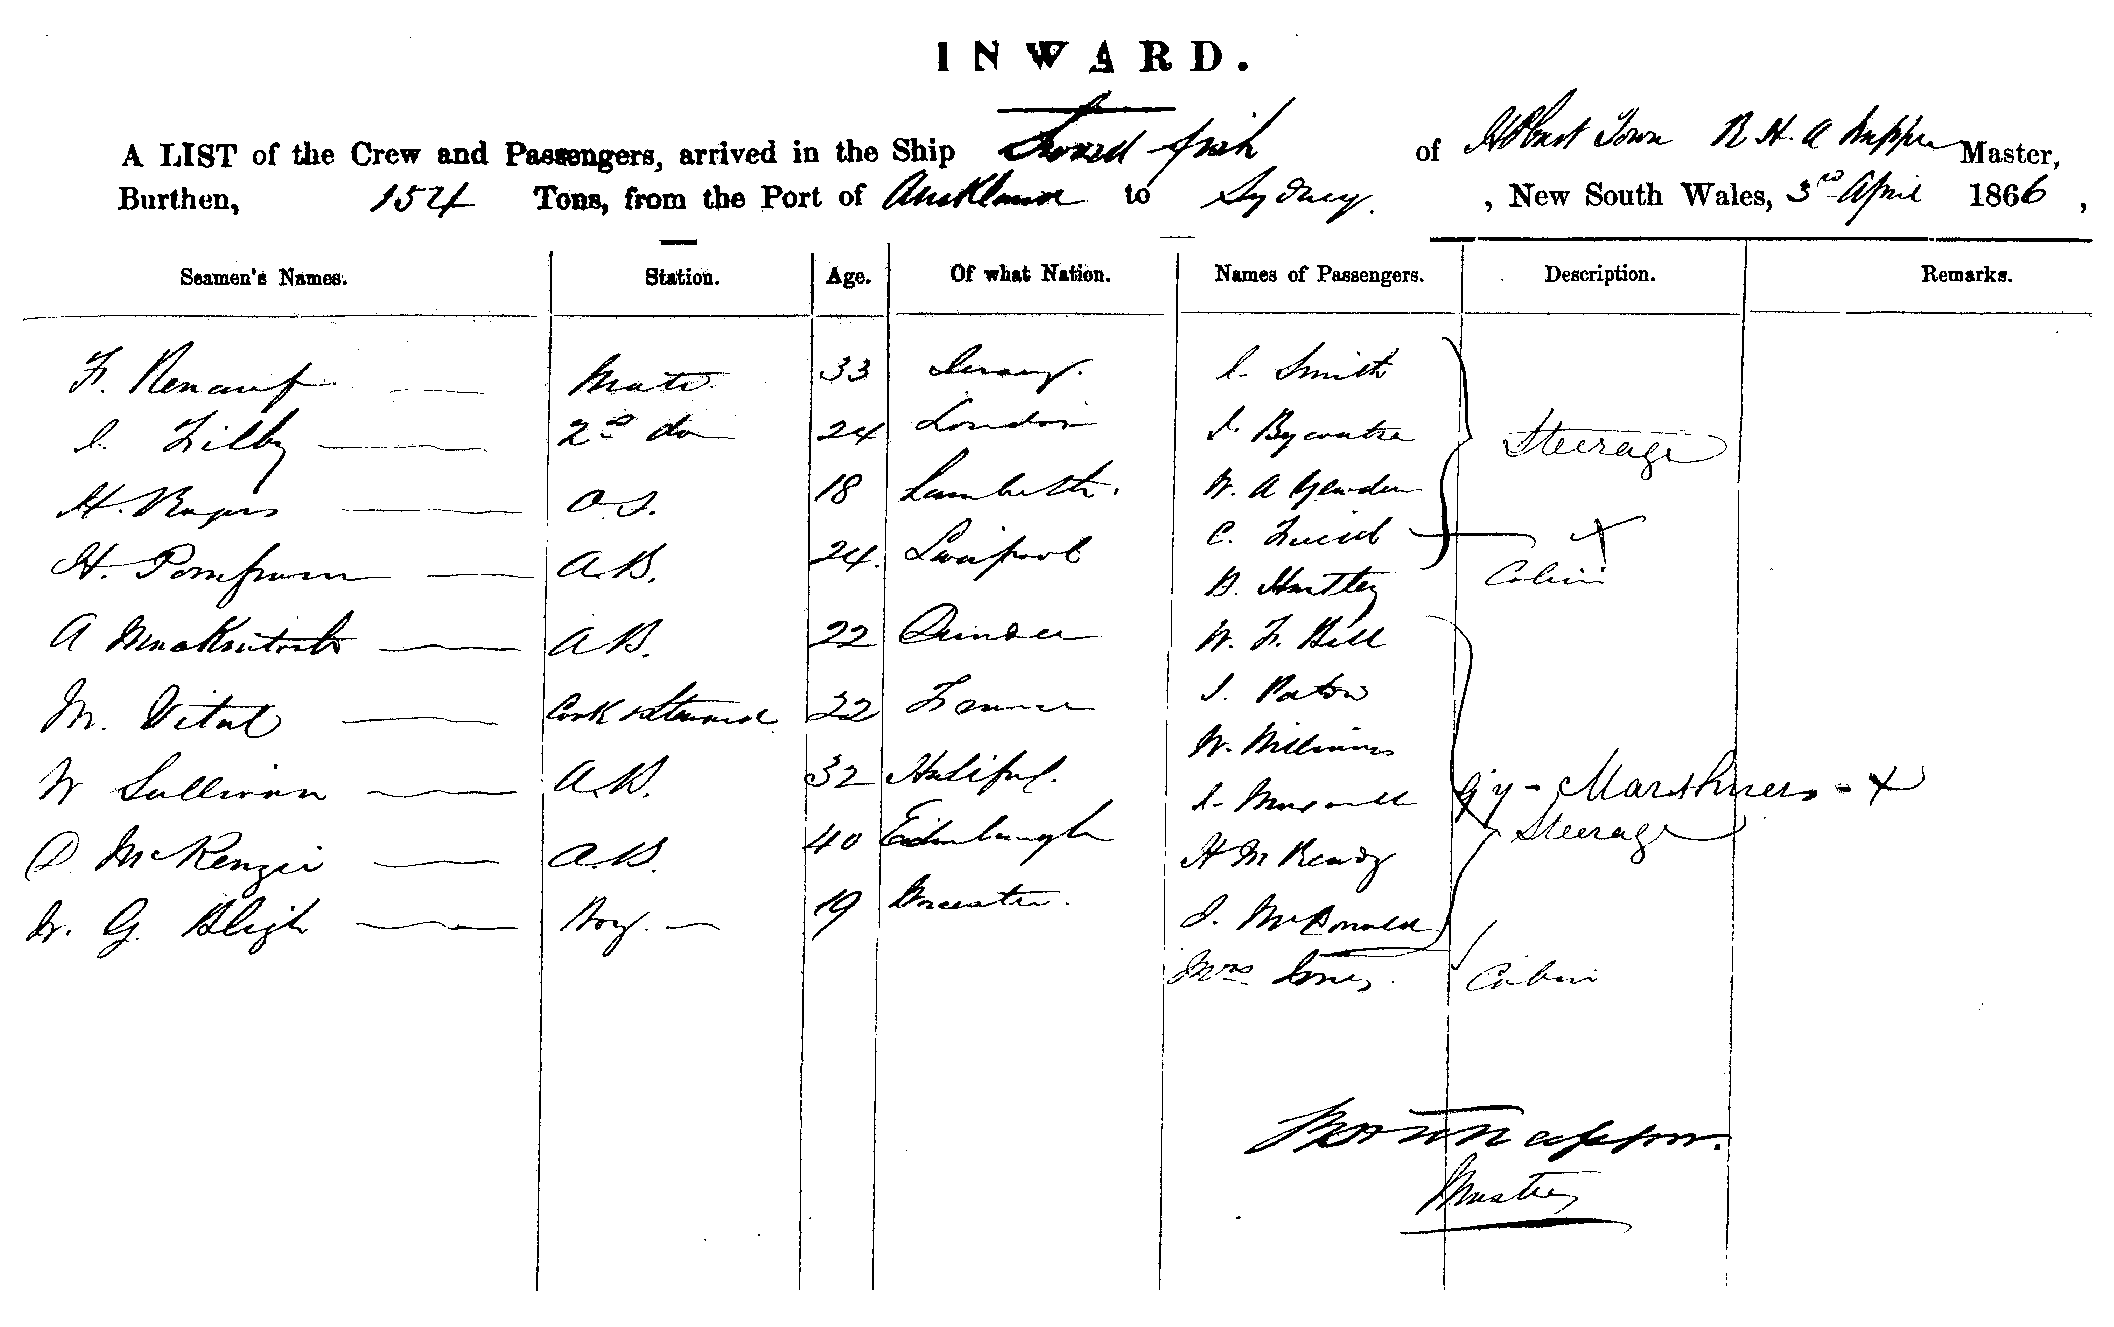 INWARD.
A LIST of the Crew and Passengers, arrived in the Ship Sword fish of Hobart Town R H. A Master,
Burthen, 154 Tons, from the Port of Auckland to Sydney. , New South Wales, 3rd April 1866 ,
Seamen's Names. Station. Age. Of what Nation. Names of Passengers. Description. Remarks.
F. Renauf Mate 33 I. Smith
I. Filby 2nd do 24 London I. Steerage
H. Rogers O.S. 18 Lambeth. W. A
H. A.B. 24. Liverpool C.
B. Hartley Cabin
A MacKintosh A B. 22 Dundee W. F. Bell
M. Vital Cook & Steward 22 France I. Paton
W. Williams
W Sullivan A.B. 32 Halifax. I.
Gy - Marshners - x
Steerage
D McKenzie A.B. 40 Edinburgh H M
W. G. Bligh Boy. 19 Worcester. I. McDonald
Mrs Jones. Cabin
Master